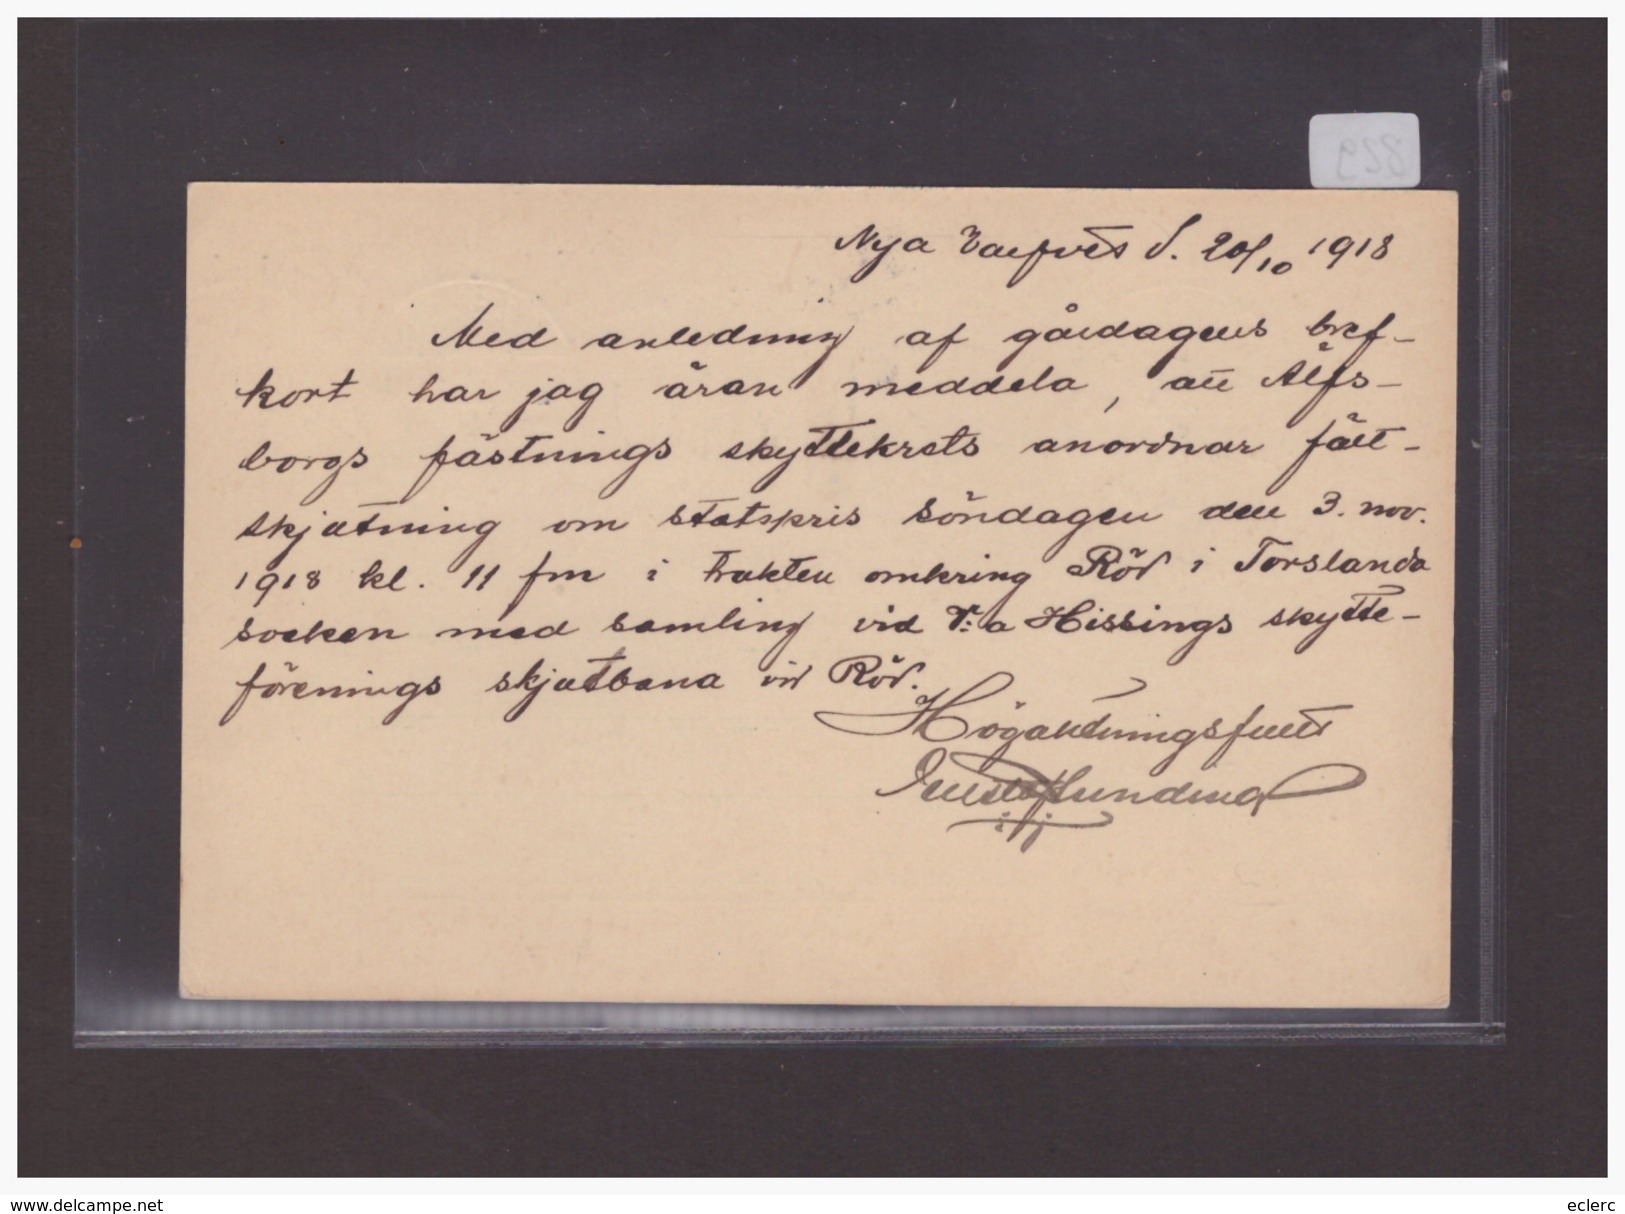 Nya Varfvet d. 20/10 1918
Med anledning af gårdagens bref-
kort har jag äran meddela, att Älfs-
borgs fästnings skyttekrets anordnar fält-
skjutning om statspris söndagen den 3. nov.
1918 kl. 11 fm i trakten omkring Röd i Torslanda
socken med samling vid V:a Hissings skytte-
förenings skjutbana vid Röd.
Högaktningsfullt
delcampe.net
eclerc